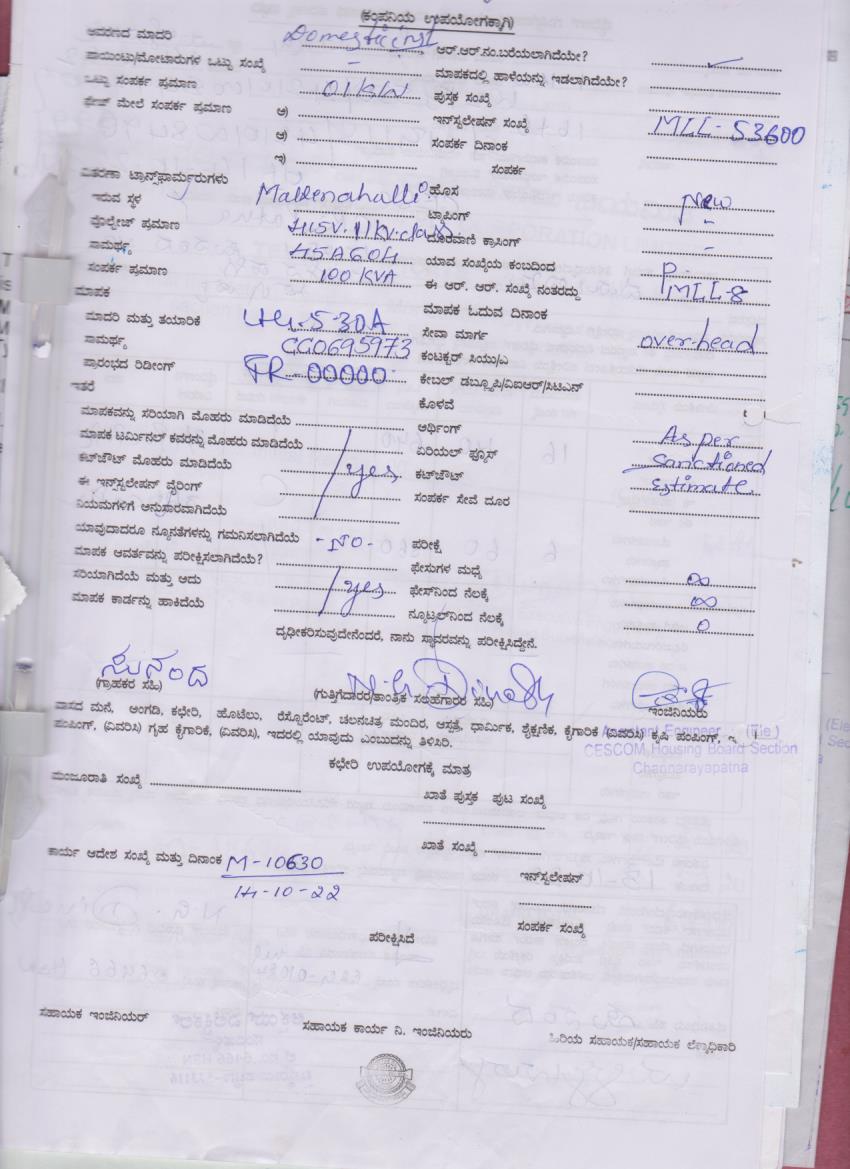 (ಕಂಪನಿಯ ಉಪಯೋಗಕ್ಕಾಗಿ)
ಆವರಣದ ಮಾದರಿ Domestic inst ಆರ್.ಆರ್.ನಂ.ಬರೆಯಲಾಗಿದೆಯೇ? ✓
ಪಾಯಿಂಟು/ಮೋಟಾರುಗಳ ಒಟ್ಟು ಸಂಖ್ಯೆ - ಮಾಪಕದಲ್ಲಿ ಹಾಳೆಯನ್ನು ಇಡಲಾಗಿದೆಯೇ?
ಒಟ್ಟು ಸಂಪರ್ಕ ಪ್ರಮಾಣ 01KW ಪುಸ್ತಕ ಸಂಖ್ಯೆ
ಫೇಜ್ ಮೇಲೆ ಸಂಪರ್ಕ ಪ್ರಮಾಣ ಅ) ಇನ್‌ಸ್ಟಲೇಷನ್ ಸಂಖ್ಯೆ MLL-53600
ಆ) ಸಂಪರ್ಕ ದಿನಾಂಕ
ಇ) ಸಂಪರ್ಕ
ವಿತರಣಾ ಟ್ರಾನ್ಸ್‌ಫಾರ್ಮರುಗಳು
ಇರುವ ಸ್ಥಳ Maldenahalli ಹೊಸ New
ವೋಲ್ಟೇಜ್ ಪ್ರಮಾಣ 415V. 11kv. class ಟ್ಯಾಪಿಂಗ್ -
ಸಾಮರ್ಥ್ಯ ದೂರವಾಣಿ ಕ್ರಾಸಿಂಗ್ -
ಸಂಪರ್ಕ ಪ್ರಮಾಣ 100 KVA ಯಾವ ಸಂಖ್ಯೆಯ ಕಂಬದಿಂದ P.
ಈ ಆರ್. ಆರ್. ಸಂಖ್ಯೆ ನಂತರದ್ದು MLL-8
ಮಾಪಕ ಮಾಪಕ ಓದುವ ದಿನಾಂಕ
ಮಾದರಿ ಮತ್ತು ತಯಾರಿಕೆ 5-30A ಸೇವಾ ಮಾರ್ಗ over-head
ಸಾಮರ್ಥ್ಯ CG0695973 ಕಂಡಕ್ಟರ್ ಸಿಯು/ಎ
ಪ್ರಾರಂಭದ ರಿಡೀಂಗ್ FR-00000 ಕೇಬಲ್ ಡಬ್ಲ್ಯೂಪಿ/ವಿಐಆರ್/ಸಿಟಿಎಸ್
ಇತರೆ ಕೊಳವೆ
ಮಾಪಕವನ್ನು ಸರಿಯಾಗಿ ಮೊಹರು ಮಾಡಿದೆಯೆ ಅರ್ಥಿಂಗ್ As per
ಮಾಪಕ ಟರ್ಮಿನಲ್ ಕವರನ್ನು ಮೊಹರು ಮಾಡಿದೆಯೆ ಏರಿಯಲ್ ಫ್ಯೂಸ್ sanctioned
ಕಟ್‌ಔಟ್ ಮೊಹರು ಮಾಡಿದೆಯೆ yes ಕಟ್‌ಔಟ್ Estimate.
ಈ ಇನ್‌ಸ್ಟಲೇಷನ್ ವೈರಿಂಗ್ ಸಂಪರ್ಕ ಸೇವೆ ದೂರ
ನಿಯಮಗಳಿಗೆ ಅನುಸಾರವಾಗಿದೆಯೆ
ಯಾವುದಾದರೂ ನ್ಯೂನತೆಗಳನ್ನು ಗಮನಿಸಲಾಗಿದೆಯೆ -NO- ಪರೀಕ್ಷೆ
ಮಾಪಕ ಆವರ್ತವನ್ನು ಪರೀಕ್ಷಿಸಲಾಗಿದೆಯೆ? ಫೇಸುಗಳ ಮಧ್ಯೆ ∞
ಸರಿಯಾಗಿದೆಯೆ ಮತ್ತು ಅದು yes ಫೇಸ್‌ನಿಂದ ನೆಲಕ್ಕೆ ∞
ಮಾಪಕ ಕಾರ್ಡನ್ನು ಹಾಕಿದೆಯೆ ನ್ಯೂಟ್ರಲ್‌ನಿಂದ ನೆಲಕ್ಕೆ 0
ದೃಢೀಕರಿಸುವುದೇನೆಂದರೆ, ನಾನು ಸ್ಥಾವರವನ್ನು ಪರೀಕ್ಷಿಸಿದ್ದೇನೆ.
ಸುನಂದ
(ಗ್ರಾಹಕರ ಸಹಿ) (ಗುತ್ತಿಗೆದಾರರ/ತಾಂತ್ರಿಕ ಸಲಹೆಗಾರರ ಸಹಿ) ಇಂಜಿನಿಯರು
ವಾಸದ ಮನೆ, ಅಂಗಡಿ, ಕಛೇರಿ, ಹೊಟೆಲು, ರೆಸ್ಟೋರೆಂಟ್, ಚಲನಚಿತ್ರ ಮಂದಿರ, ಆಸ್ಪತ್ರೆ, ಧಾರ್ಮಿಕ, ಶೈಕ್ಷಣಿಕ, ಕೈಗಾರಿಕೆ (ವಿವರಿಸಿ) ಕೃಷಿ ಪಂಪಿಂಗ್,
ಪಂಪಿಂಗ್, (ವಿವರಿಸಿ) ಗೃಹ ಕೈಗಾರಿಕೆ, (ವಿವರಿಸಿ), ಇದರಲ್ಲಿ ಯಾವುದು ಎಂಬುದನ್ನು ತಿಳಿಸಿರಿ.
Assistant Engineer (Ele)
CESCOM Housing Board Section
Channarayapatna
ಕಛೇರಿ ಉಪಯೋಗಕ್ಕೆ ಮಾತ್ರ
ಮಂಜೂರಾತಿ ಸಂಖ್ಯೆ ಖಾತೆ ಪುಸ್ತಕ ಪುಟ ಸಂಖ್ಯೆ
ಖಾತೆ ಸಂಖ್ಯೆ
ಕಾರ್ಯ ಆದೇಶ ಸಂಖ್ಯೆ ಮತ್ತು ದಿನಾಂಕ M-10630
14-10-22
ಇನ್‌ಸ್ಟಲೇಷನ್
ಸಂಪರ್ಕ ಸಂಖ್ಯೆ
ಪರೀಕ್ಷಿಸಿದೆ
ಸಹಾಯಕ ಇಂಜಿನಿಯರ್ ಸಹಾಯಕ ಕಾರ್ಯ ನಿ. ಇಂಜಿನಿಯರು ಹಿರಿಯ ಸಹಾಯಕ/ಸಹಾಯಕ ಲೆಕ್ಕಾಧಿಕಾರಿ